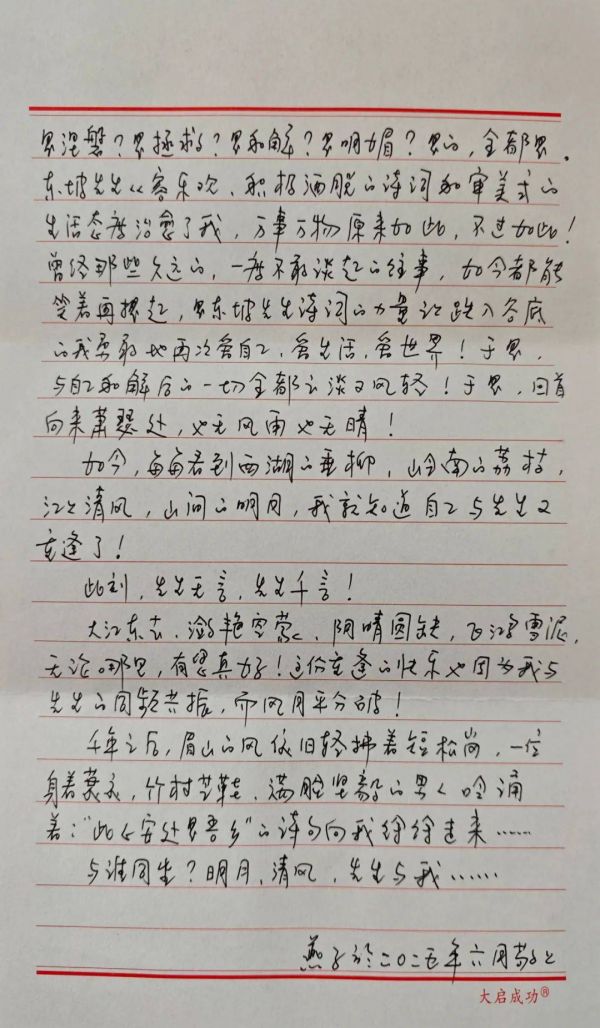 是涅槃？是拯救？是和解？是明媚？是的，全都是。
东坡先生从容乐欢、积极洒脱的诗词和审美式的
生活态度治愈了我，万事万物原来如此，不过如此！
曾经那些久远的，一度不敢谈起的往事，如今都能
笑着再提起，是东坡先生诗词的力量让跌入谷底
的我勇敢地再次爱自己，爱生活，爱世界！于是，
与自己和解后的一切全都云淡又风轻！于是，回首
向来萧瑟处，也无风雨也无晴！
如今，每每看到西湖的垂柳，岭南的荔枝，
江上清风，山间的明月，我就知道自己与先生又
重逢了！
此刻，先生无言，先生千言！
大江东去、潋艳空蒙、阴晴圆缺，飞鸿雪泥，
无论哪里，有您真好！这份重逢的快乐也因为我与
先生的同频共振，而风月平分破！
千年之后，眉山的风依旧轻拂着短松岗，一位
身着蓑衣，竹杖芒鞋、满脸坚毅的男人吟诵
着："此心安处是吾乡"的诗句向我徐徐走来……
与谁同坐？明月、清风，先生与我……
燕子於二〇二五年六月敬上
大启成功®